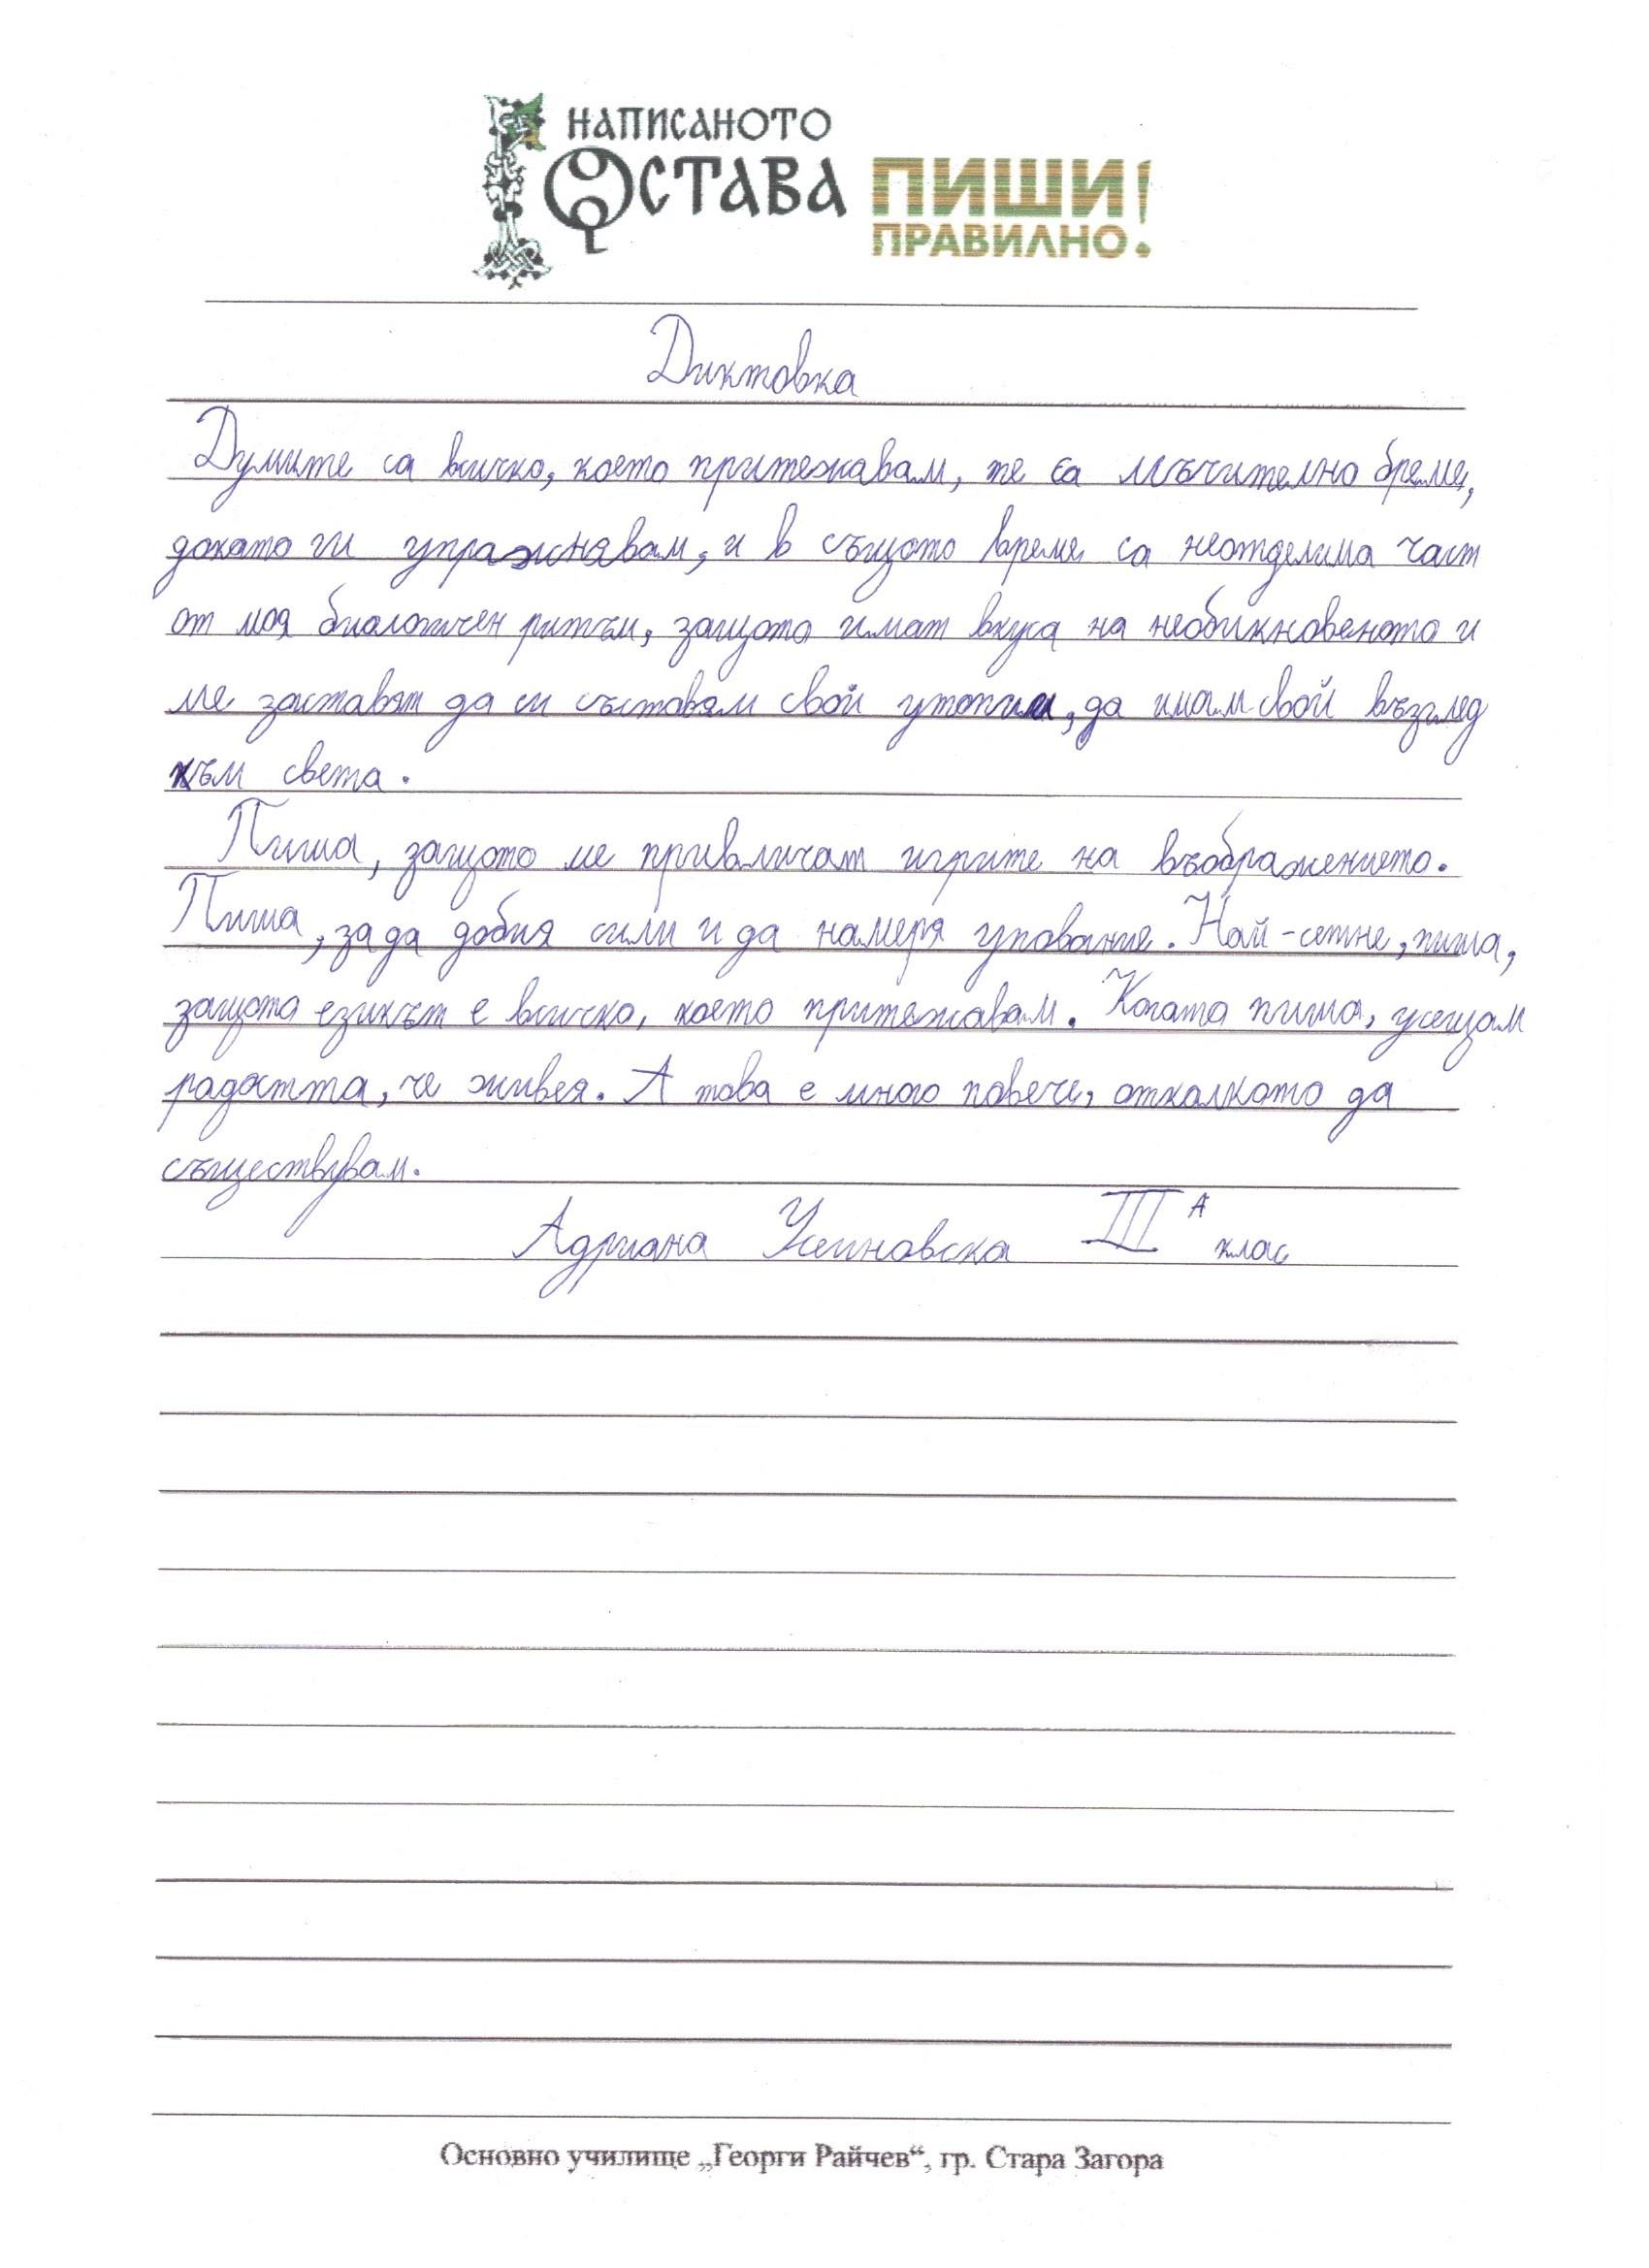 НАПИСАНОТО
ОСТАВА ПИШИ
ПРАВИЛНО!
Диктовка
Думите са всичко, което притежавам, те са мъчително бреме,
докато ги упражнявам, и в същото време са неотделима част
от моя биологичен ритъм, защото имат вкуса на необикновеното и
ме заставят да си съставям свои утопии, да имам свой възглед
към света.
Пиша, защото ме привличат игрите на въображението.
Пиша, за да добия сили и да намеря упование. Най-сетне, пиша,
защото езикът е всичко, което притежавам. Когато пиша, усещам
радостта, че живея. А това е много повече, отколкото да
съществувам.
Адриана Усиновска III А клас
Основно училище „Георги Райчев“, гр. Стара Загора